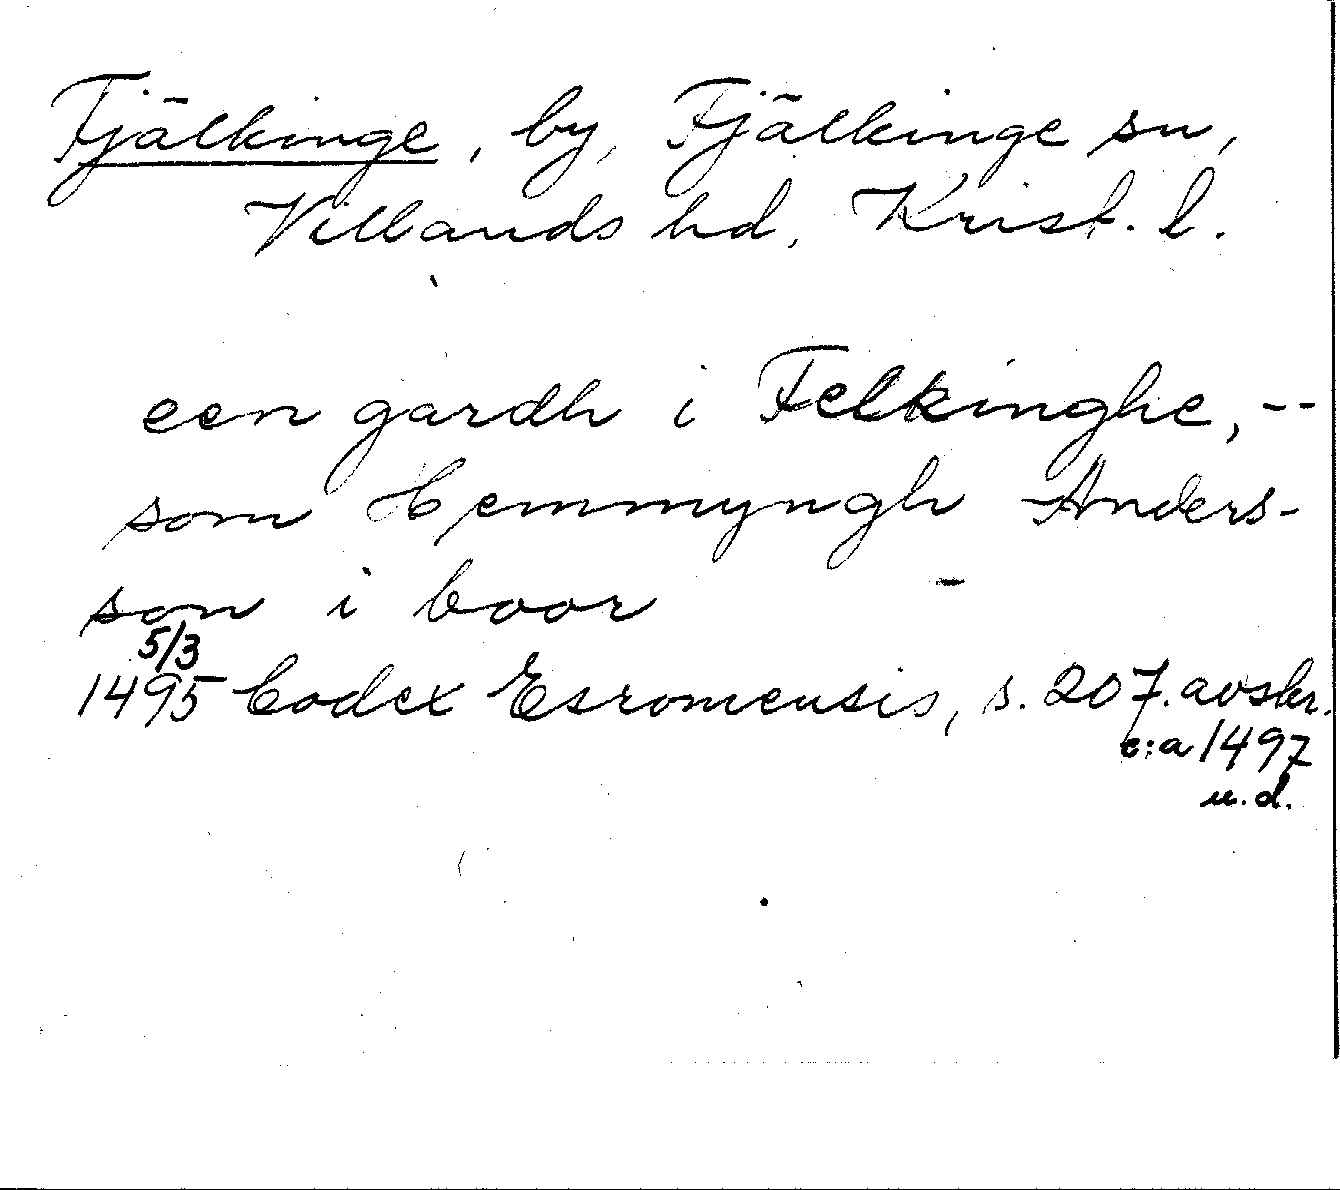 Fjälkinge, by, Fjälkinge sn,
Villands hd, Krist. l.
een gardh i Felkinghe, --
som Hemmyngh Anders-
son i boor -
5/3
1495 Codex Esromensis, s. 207. avskr.
c:a 1497
u.d.